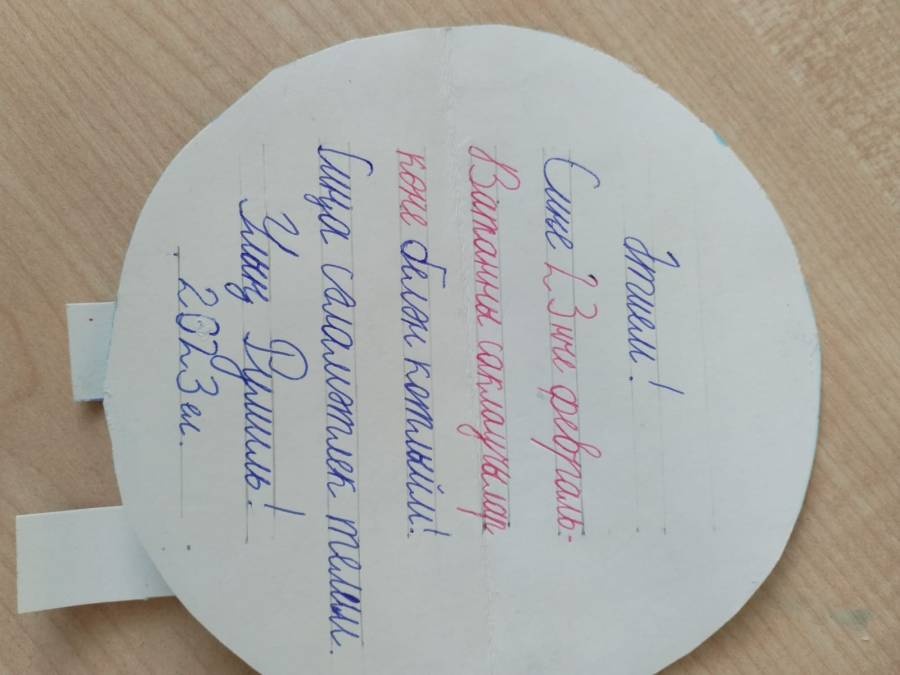 Әтием!
Сине 23нче февраль-
Ватанны саклаучылар
көне белән котлыйм!
Сиңа сәламәтлек телим.
Улың Рәмиль!
2023 ел.